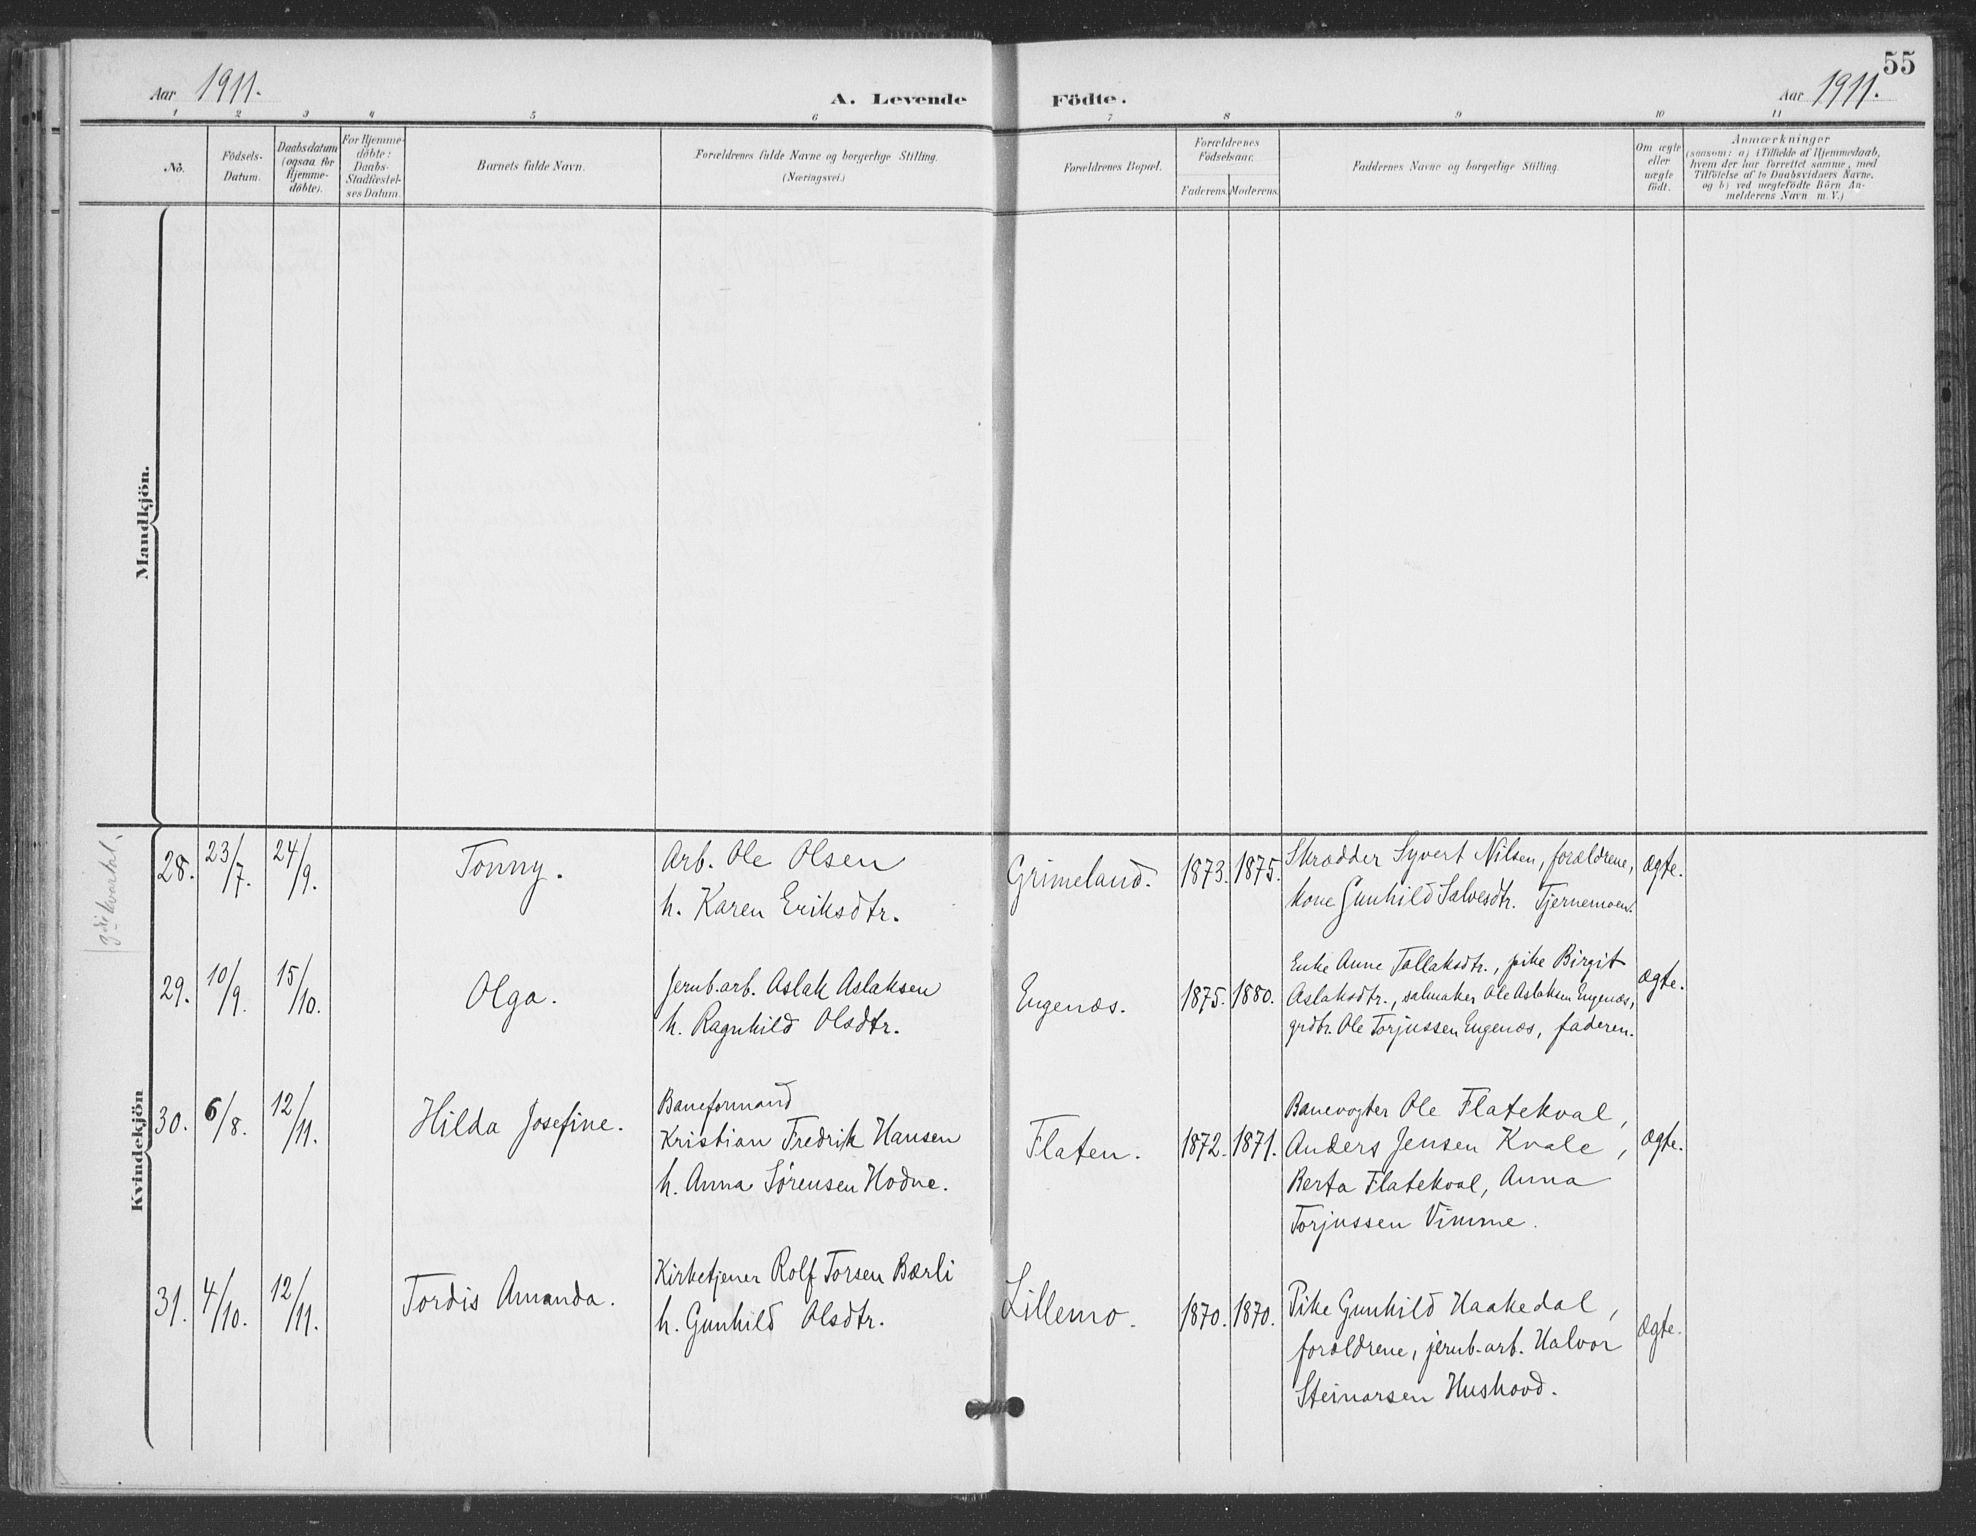 55
Aar 1911.
A. Levende Födte.
Aar 1911.
1 2 3 4 5 6 7 8 9 10 11
No.
Födsels-
Datum.
Daabsdatum
(ogsaa for
Hjemme-
döbte).
For Hjemme-
döbte:
Daabs-
Stadfæstel-
ses Datum.
Barnets fulde Navn.
Forældrenes fulde Navne og borgerlige Stilling.
(Næringsvei.)
Forældrenes Bopæl.
Forældrenes
Födselsaar.
Faderens. Moderens.
Faddernes Navne og borgerlige Stilling.
Om ægte
eller
uægte
födt.
Anmærkninger
(saasom: a) i Tilfælde af Hjemmedaab,
hvem der har forrettet samme, med
Tilföielse af to Daabsvidners Navne.
og b) ved uægtefödte Börn An-
melderens Navn m. V.)
Mandkjön.
Kvindekjön
28. 23/7. 24/9.
Tonny.
Arb. Ole Olsen
h. Karen Eriksdtr.
Grimeland.
1873. 1875.
Skrædder Syvert Nilsen, forældrene,
kone Gunhild Salvesdtr. Tjernemoen.
ægte.
29. 10/9. 15/10.
Olga.
Jernb.arb. Aslak Aslaksen
h. Ragnhild Olsdtr.
Engenæs.
1875. 1880.
Enke Anne Tallaksdtr., pike Birgit
Aslaksdtr., salmaker Ole Aslaksen Engenæs,
grdbr. Ole Torjussen Engenæs, faderen.
ægte.
30. 6/8. 12/11.
Hilda Josefine.
Baneformand
Kristian Fredrik Hansen
h. Anna Sørensen Hodne.
Flaten.
1872. 1871.
Banevogter Ole Flatekval,
Anders Jensen Kvale,
Berta Flatekval, Anna
Torjussen Vimme.
ægte.
31. 4/10. 12/11.
Tordis Amanda.
Kirketjener Rolf Torsen Bærli
h. Gunhild Olsdtr.
Lillemo.
1870. 1870.
Pike Gunhild Haakedal,
forældrene, jernb.arb. Halvor
Steinarsen Hushovd.
ægte.